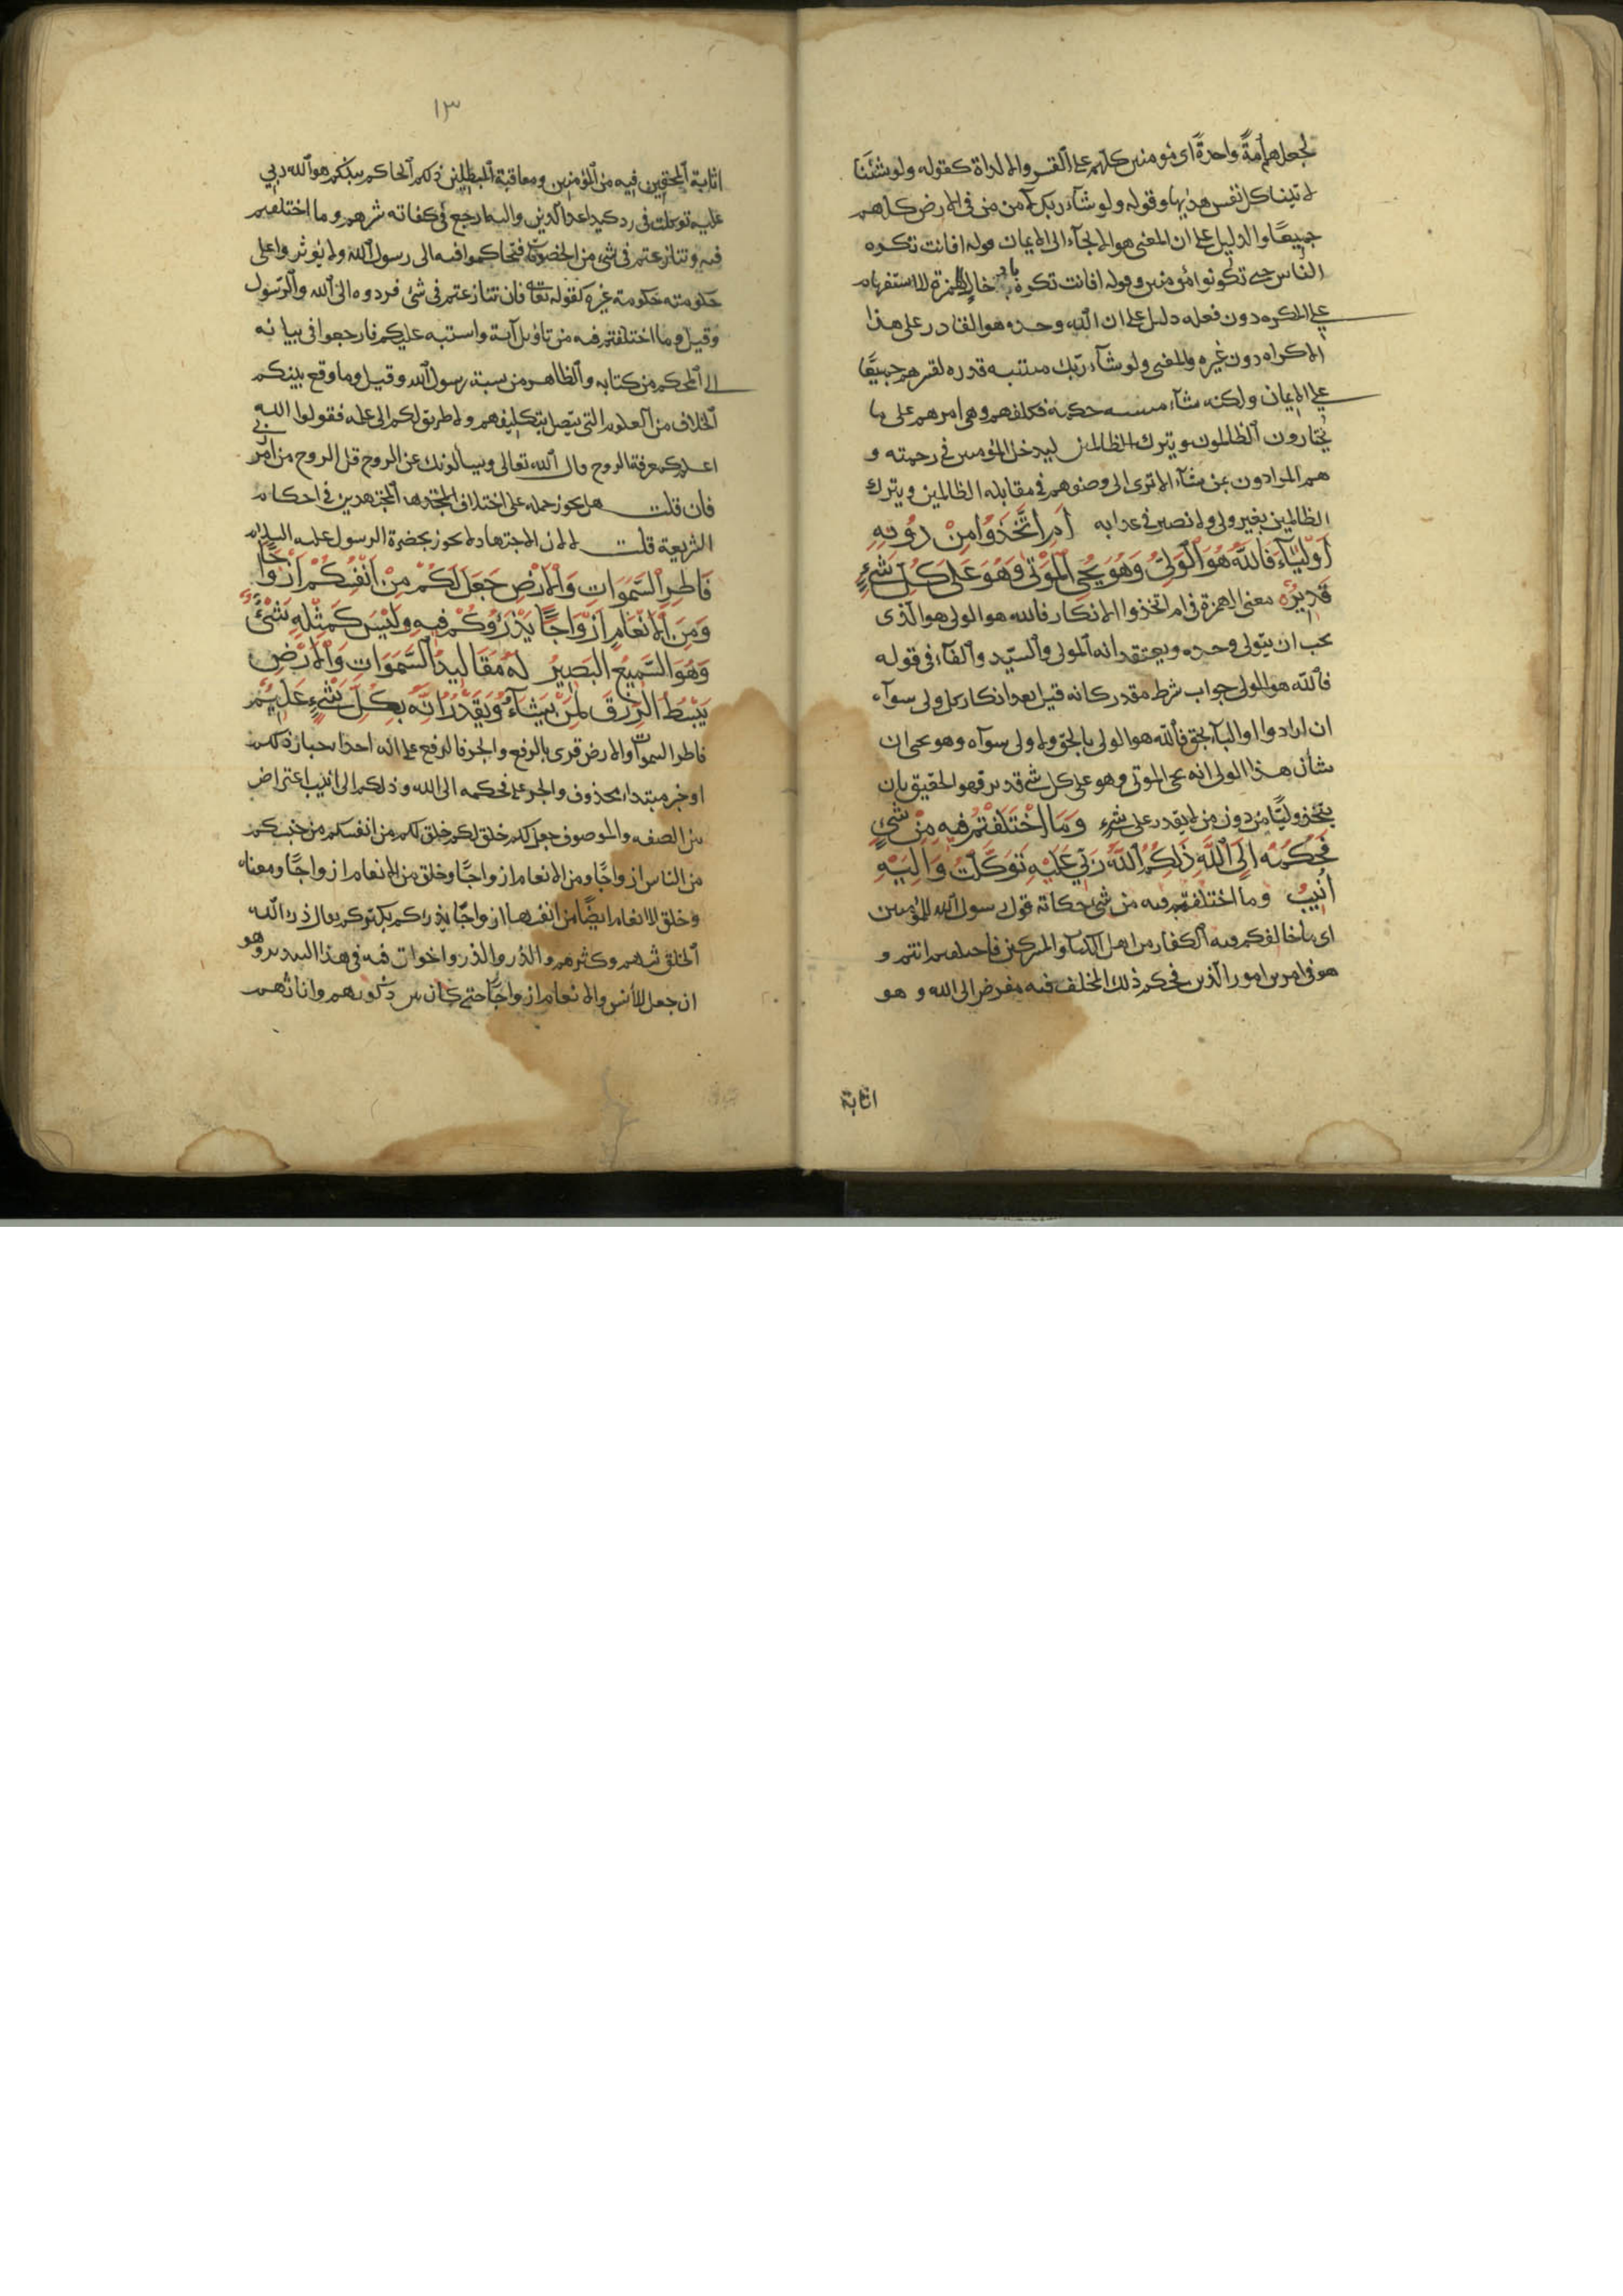 لجعلهم أمةً واحدةً اى مؤمنين كلهم على القسر والاكراه كقوله ولو شئنا
لاتينا كل نفس هديها وقوله ولو شآء ربك لآمن من فى الارض كلهم
جميعًا والدليل على ان المعنى هو الالجآء الى الايمان قوله افانت تكره
الناس حتى تكونوا مؤمنين وقوله افانت تكره بادخال الهمزة للاستفهام
على المكره دون فعله دليل على ان الله وحده هو القادر على هذا
الاكراه دون غيره والمعنى ولو شآء ربك مشيئة قدره لقسرهم جميعًا
على الايمان ولكنه شآء مشيئة حكمة فكلفهم وبنى امرهم على ما
يختارون ليدخل المؤمنين فى رحمته و
هم المرادون بمن يشآء الا ترى الى وضعهم فى مقابلة الظالمين ويترك
الظالمين بغير ولى ولا نصير فى عذابه أَمِ اتَّخَذُوا مِنْ دُونِهِ
أَوْلِيَآءَ فَاللَّهُ هُوَ الْوَلِىُّ وَهُوَ يُحْيِ الْمَوْتٰى وَهُوَ عَلٰى كُلِّ شَىْءٍ
قَدِيرٌ معنى الهمزة فى ام اتخذوا الانكار فالله هو الولى هو الذى
يجب ان يتولى وحده ويعتقد انه المولى والسيّد والفآء فى قوله
فالله هو الولى جواب شرط مقدر كانه قيل بعد انكار كل ولى سوآه
ان ارادوا اوليآء بحق فالله هو الولى بالحق ولا ولى سوآه وهو يحى ان
شأن هذا الولى انه يحى الموتى وهو على كل شئ قدير فهو الحقيق بان
يتخذ وليًا دون من لا يقدر على شئ وَمَا اخْتَلَفْتُمْ فِيهِ مِنْ شَىْءٍ
فَحُكْمُهُ إِلَى اللَّهِ ذَلِكُمُ اللَّهُ رَبِّى عَلَيْهِ تَوَكَّلْتُ وَإِلَيْهِ
أُنِيبُ وما اختلفتم فيه من شئ حكاية قول رسول الله للمؤمنين
اى ما خالفكم فيه الكفار من اهل الكتاب والمشركين فاختلفتم انتم و
هو فى امر من امور الدين فحكم ذلك المختلف فيه مفوض الى الله و هو
اثابة
١٣
اثابة المحقين فيه من المؤمنين ومعاقبة المبطلين ذلكم الحاكم بينكم هو الله ربى
عليه توكلت فى رد كيد اعدآء الدين واليه ارجع فى كفاية شرهم وما اختلفتم
فيه وتنازعتم فى شئ من الخصومات فتحاكموا فيه الى رسول الله ولا توثروا على
حكومته حكومة غيره كقوله تعالى فان تنازعتم فى شئ فردوه الى الله والرّسول
وقيل وما اختلفتم فيه من تاويل آية واشتبه عليكم فارجعوا فى بيانه
الى المحكم من كتابه والظاهر من سنة رسول الله وقيل وما وقع بينكم
الخلاف من العلوم التى يتصل بتكليفهم ولا طريق لكم الى علمه فقولوا الله
اعلم كمعرفة الروح قال الله تعالى ويسألونك عن الروح قل الروح من امر ربى
فان قلت هل يجوز حمله على اختلاف المجتهدين فى احكام
الشريعة قلت لا لان الاجتهاد لا يجوز بحضرة الرسول عليه السلام
فَاطِرِ السَّمَوَاتِ وَالْأَرْضِ جَعَلَ لَكُمْ مِنْ أَنْفُسِكُمْ أَزْوَاجًا
وَمِنَ الْأَنْعَامِ أَزْوَاجًا يَذْرَؤُكُمْ فِيهِ وَلَيْسَ كَمِثْلِهِ شَىْءٌ
وَهُوَ السَّمِيعُ الْبَصِيرُ لَهُ مَقَالِيدُ السَّمَوَاتِ وَالْأَرْضِ
يَبْسُطُ الرِّزْقَ لِمَنْ يَشَآءُ وَيَقْدِرُ إِنَّهُ بِكُلِّ شَىْءٍ عَلِيمٌ
فاطر السموات والارض قرئ بالرفع والجر فالرفع على انه احد اخبار ذلكم
او خبر مبتدأ محذوف والجر على فحكمه الى الله وذلكم الى انيب اعتراض
بين الصفه والموصوف جعل لكم خلق لكم من انفسكم من جنسكم
من الناس ازواجًا ومن الانعام ازواجًا وخلق من الانعام ازواجًا ومعناه
وخلق للانعام ايضًا من انفسها ازواجًا يذرأكم يكثركم يقال ذرأ الله
الخلق بثهم وكثرهم والذر والذرو اخوات فيه فى هذا التدبير وهو
ان جعل للأنس والانعام ازواجًا حتى كان بين ذكورهم واناثهم